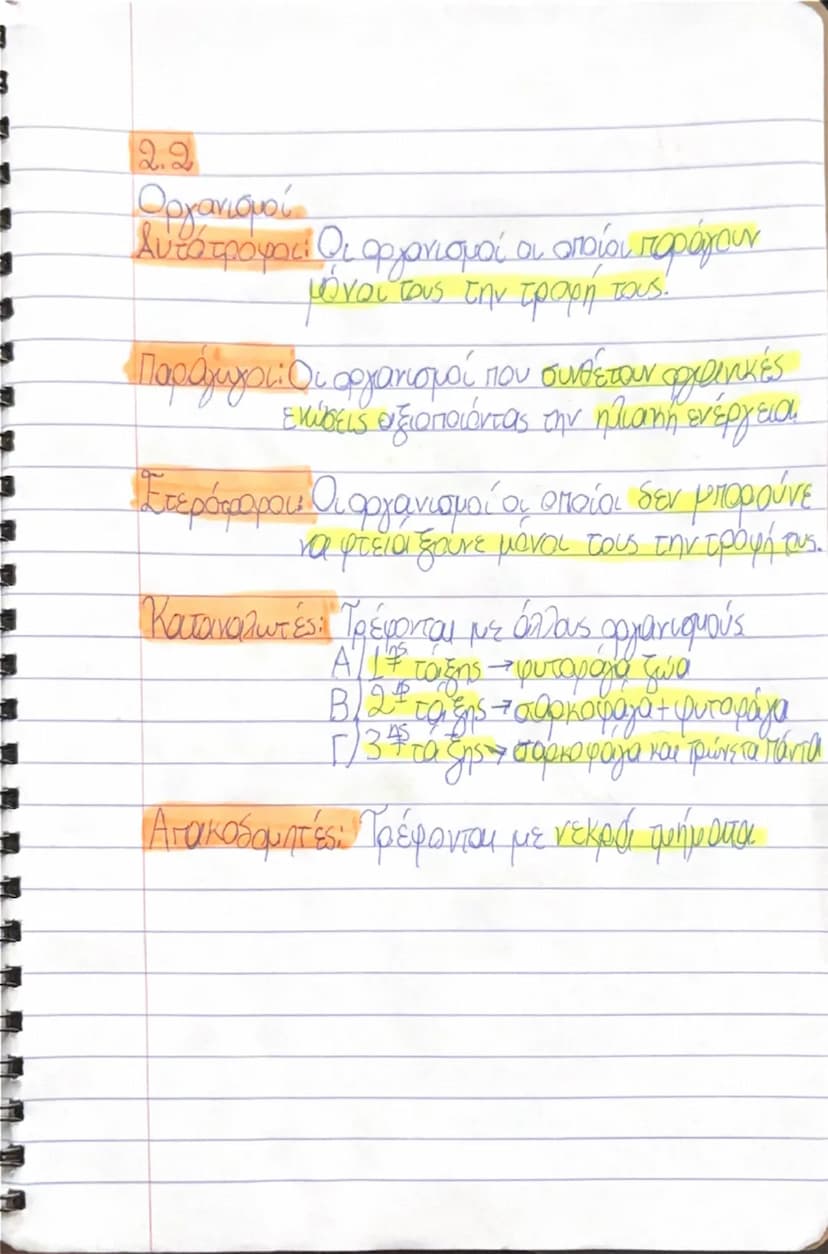 2.2
Οργανισμοί
Αυτότροφοι: Οι οργανισμοί οι οποίοι παράγουν
μόνοι τους την τροφή τους.
Παράγωγοι: Οι οργανισμοί που συνθέτουν οργανικές
ενώσεις αξιοποιόντας την ηλιακή ενέργεια.
Ετερότροφοι: Οι οργανισμοί οι οποίοι δεν μπορούνε
να φτειάξουνε μόνοι τους την τροφή τους.
Καταναλωτές: Τρέφονται με άλλους οργανισμούς
Α) 1ης τάξης → φυτοφάγα ζώα
Β) 2ης τάξης → σαρκοφάγα + φυτοφάγα
Γ) 3ης τάξης → σαρκοφάγα και τρώνε τα πάντα
Αποικοδομητές: Τρέφονται με νεκρά τμήματα